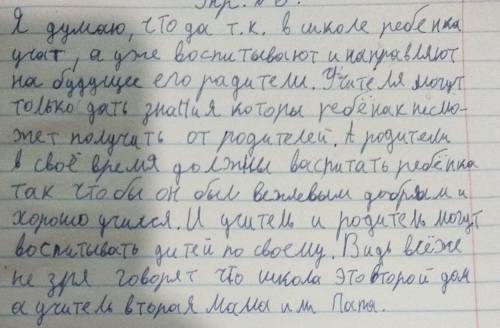 Упр. № 8.
Я думаю, что да т.к. в школе ребёнка
учат, а уже воспитывают и направляют
на будущее его радители. Учителя могут
только дать знания которы ребёнак не смо-
жет получить от родителей. А родители
в своё время должны васпитать ребёнка
так что бы он был вежлевым добрым и
хорошо учился. И учитель и родитель могут
воспитывать дитей по своему. Видь всё же
не зря говорят что школа это второй дом
а учитель вторая мама или Папа.